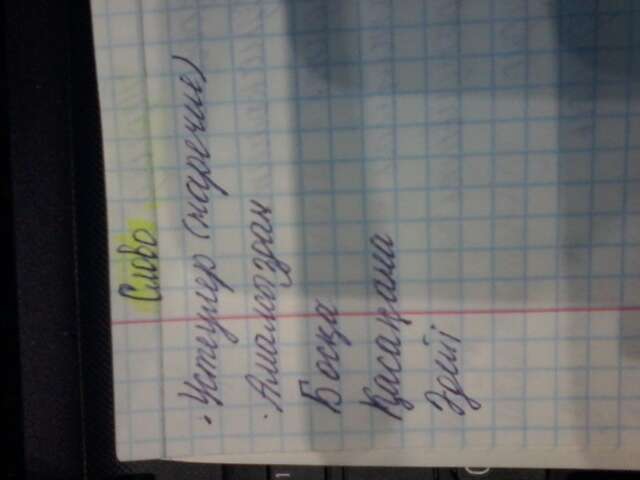 Слово
· Үстеулер (наречие)
· Амалсыздан
Босқа
Қасақана
Әдейі